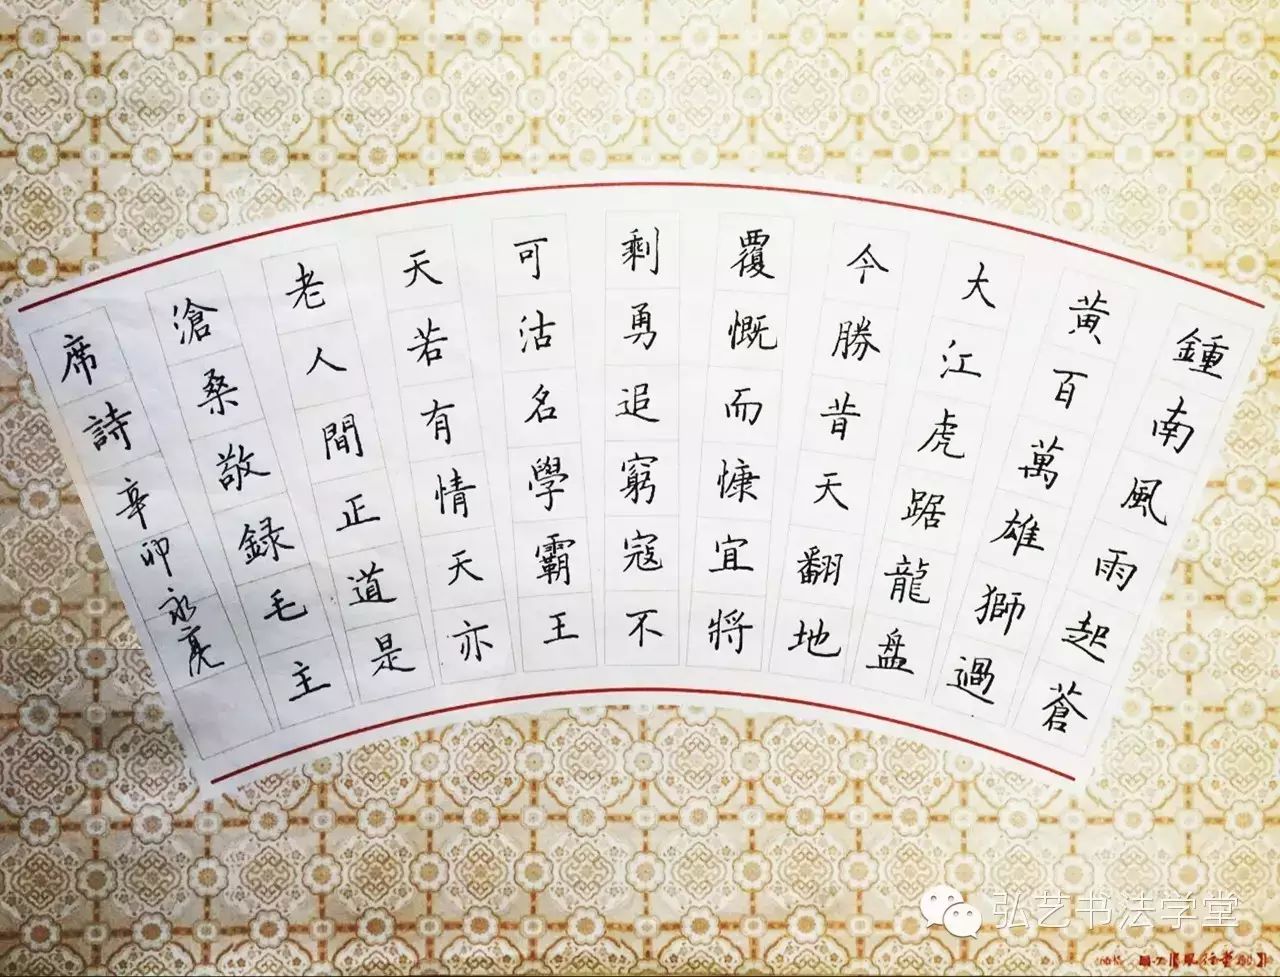 鍾南風雨起蒼
黃百萬雄獅過
大江虎踞龍盘
今勝昔天翻地
覆慨而慷宜將
剩勇追窮寇不
可沽名學霸王
天若有情天亦
老人間正道是
滄桑敬録毛主
席詩辛卯永亮
弘艺书法学堂